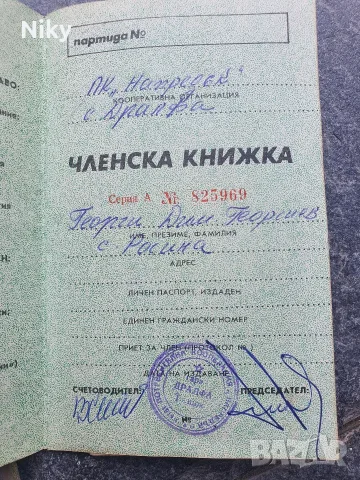 Niky
партида №
ПК „Напредък“
КООПЕРАТИВНА ОРГАНИЗАЦИЯ
с. Драгфа
ЧЛЕНСКА КНИЖКА
Серия А № 825969
Георги Дим Георгиев
ИМЕ, ПРЕЗИМЕ, ФАМИЛИЯ
с Росина
АДРЕС
ЛИЧЕН ПАСПОРТ, ИЗДАДЕН
ЕДИНЕН ГРАЖДАНСКИ НОМЕР
ПРИЕТ ЗА ЧЛЕН (ПРОТОКОЛ №
ДАТА НА ИЗДАВАНЕ
СЧЕТОВОДИТЕЛ:
ПРЕДСЕДАТЕЛ:
BAZAR
bg